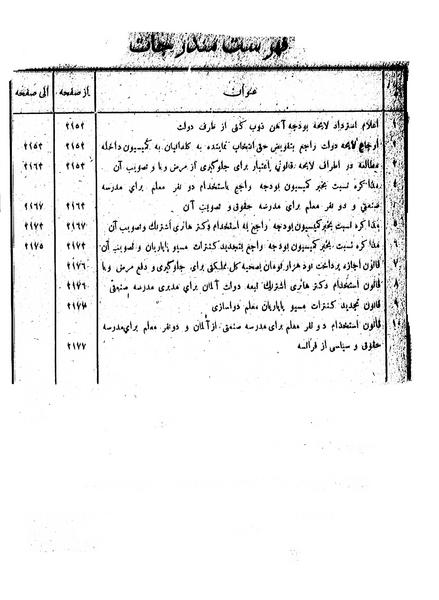 فهرست مندرجات
عنوان از صفحه الی صفحه
۱ اعلام استرداد لایحه بودجه آهن ذوب کنی از طرف دولت ۲۱۵۲
۲ ارجاع لایحه دولت راجع بتفویض حق انتخاب نماینده به کلدانیان به کمیسیون داخله ۲۱۵۲ ۲۱۵۳
۳ مطالعه در اطراف لایحه قانونی اعتبار برای جلوگیری از مرض وبا و تصویب آن ۲۱۵۳ ۲۱۶۳
۴ مذاکره نسبت بخبر کمیسیون بودجه راجع باستخدام دو نفر معلم برای مدرسه
صنعتی و دو نفر معلم برای مدرسه حقوق و تصویب آن ۲۱۶۳ ۲۱۶۷
۵ مذاکره نسبت بخبر کمیسیون بودجه راجع به استخدام دکتر هانری اشترنک و تصویب آن ۲۱۶۷ ۲۱۷۲
۶ مذاکره نسبت بخبر کمیسیون بودجه راجع بتجدید کنترات مسیو پاپاریان و تصویب آن ۲۱۷۲ ۲۱۷۵
۷ قانون اجازه پرداخت نود هزار تومان بصحیه کل مملکتی برای جلوگیری و دفع مرض وبا ۲۱۷۶
۸ قانون استخدام دکتر هانری اشترنک تبعه دولت آلمان برای مدیری مدرسه صنعتی ۲۱۷۶
۹ قانون تجدید کنترات مسیو پاپاریان معلم دواسازی ۲۱۷۷
۱۰ قانون استخدام دو نفر معلم برای مدرسه صنعتی از آلمان و دو نفر معلم برای مدرسه
حقوق و سیاسی از فرانسه ۲۱۷۷